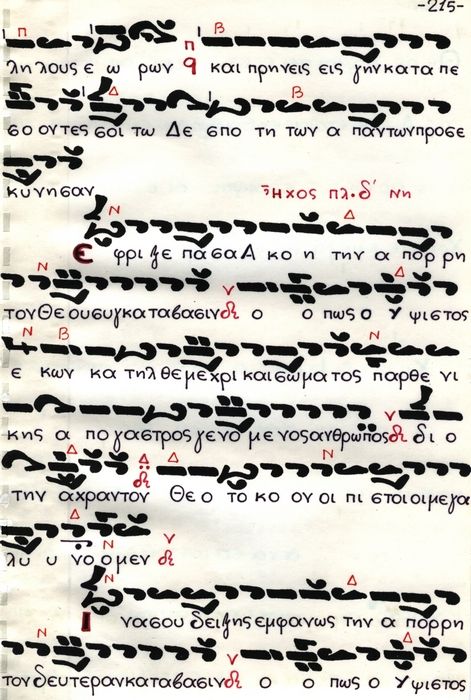 -215-
λη λους ε ω ρων και πρηνεις εις γην κατα πε
σο οντες σοι τω Δε σπο τη των α παντων προσε
κυνησαν
Ἦχος πλ. δ' Νη
Ε φριξε πασα Α κο η την α πορ ρη
τον Θεου συγκαταβασιν ο ο πως ο Υ ψιστος
ε κων κα τηλ θε μεχρι και σωματος παρθε νι
κης α πο γαστρος γενο μενος ανθρωπος δι ο
την αχραντον Θε ο το κο ον οι πι στοι οι μεγα
λυ υ νο ομεν
Ι να σου δειξης εμφανως την α πορρη
τον δευτεραν καταβασιν ο ο πως ο Υ ψιστος